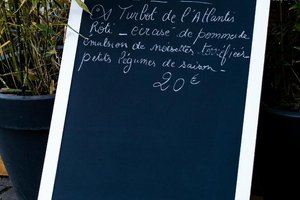 Turbot de l'Atlantis
Rôti _ ecrasé de pomme de
emulsion de noisettes torréfiées
petits légumes de saison _
20 €